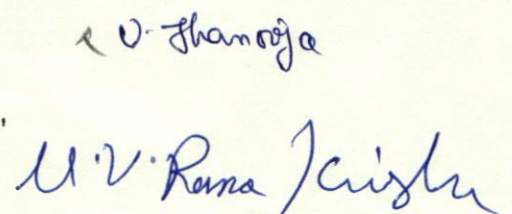 V. Thanooja
M.V. Rama Krishna